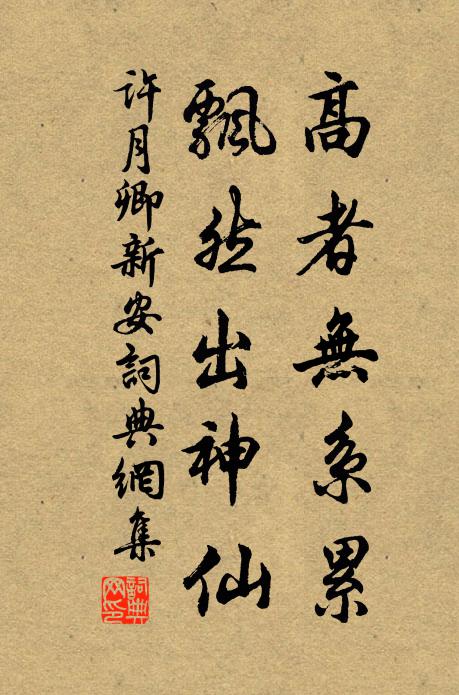 高者無系累
飄然出神仙
許月卿新安詞典網集
詞典网印